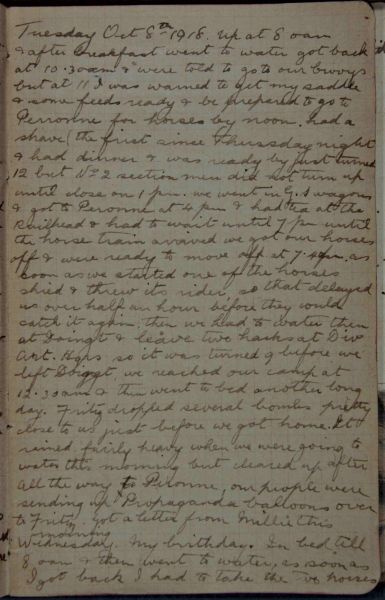 Tuesday Oct 8th 1918. Up at 8 oam
& after breakfast went to water got back
at 10.30am & were told to go to our bivvys
but at 11 I was warned to get my saddle
& some feeds ready & be prepared to go to
Perronne for horses by noon. had a
shave (the first since Thursday night
& had dinner & was ready by just turned
12 but No 2 section men did not turn up
until close on 1 pm. we went in G.S wagons
& got to Peronne at 4 pm & had tea at the
Railhead & had to wait until 7 pm until
the horse train arived we got our horses
off & were ready to move off at 7. pm. as
soon as we started one of the horses
shied & threw its rider, so that delayed
us over half an hour before they could
catch it again. then we had to water them
at Doingt & leave two hacks at Div
Art. Hqrs so it was turned 9 before we
left Doingt. we reached our camp at
12.30am & then went to bed another long
day. Fritz dropped several bombs pretty
close to us just before we got home. It
rained fairly heavy when we were going to
water this morning but cleared up after
All the way to Peronne, our people were
sending up Propaganda balloons over
to Fritz. got a letter from Millie this
morning
Wednesday. My birthday. In bed till
8 oam & then went to water, as soon as
I got back I had to take the two horses